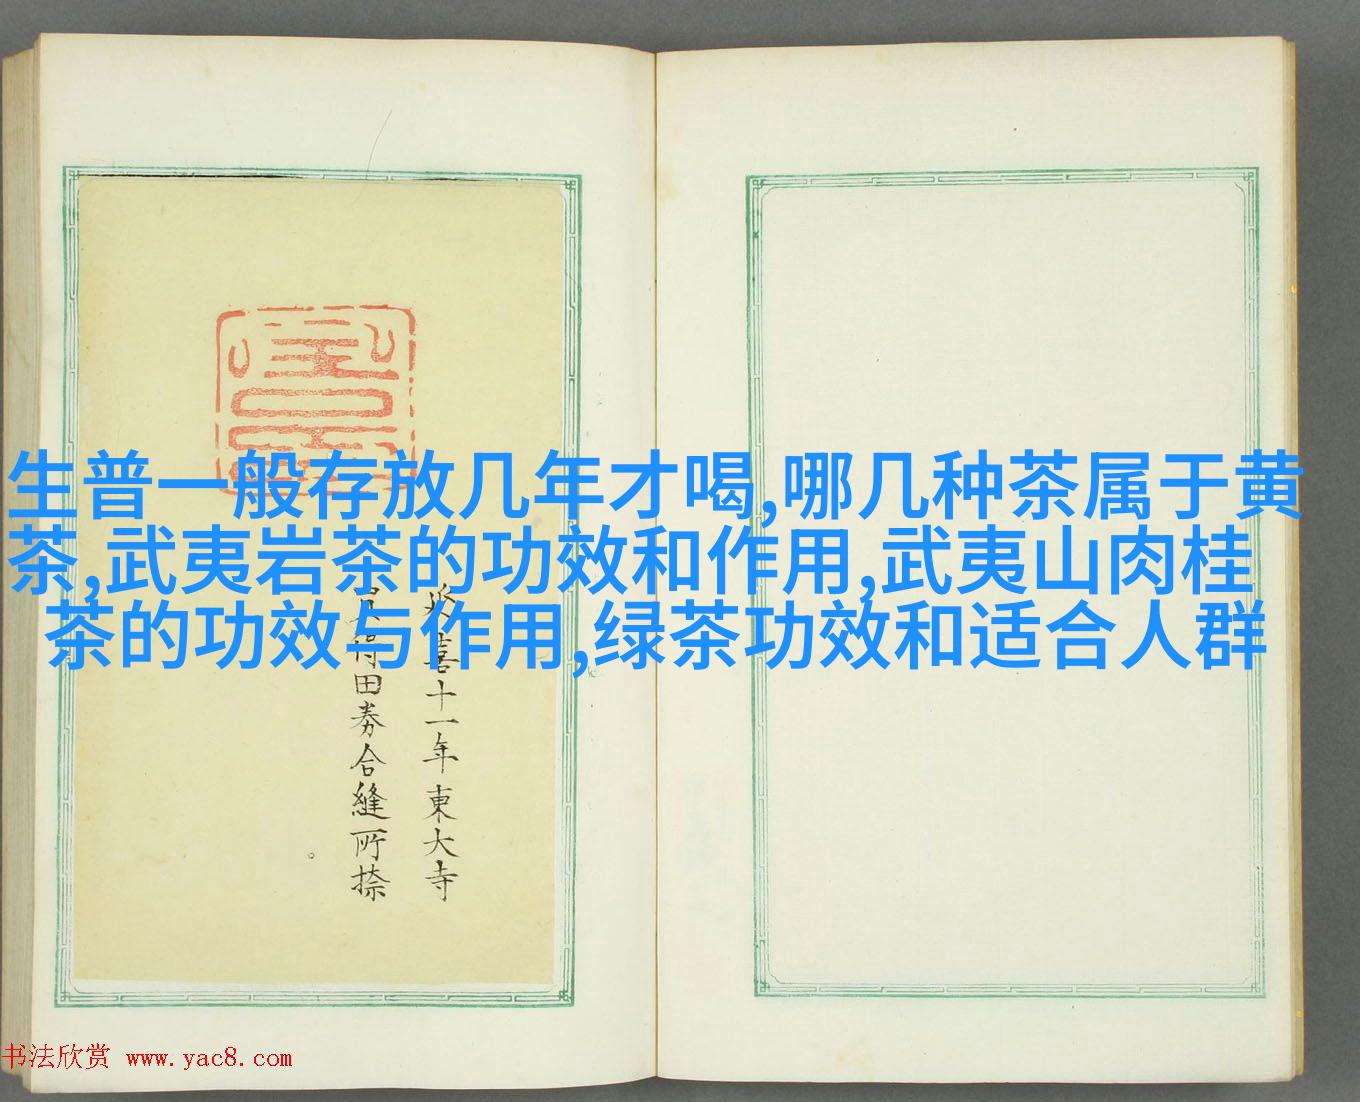 生普一般存放几年才喝,哪几种茶属于黄
茶,武夷岩茶的功效和作用,武夷山肉桂
茶的功效与作用,绿茶功效和适合人群
喜十一年東大寺
田券合縫所捺
书法欣赏 www.yac8.com